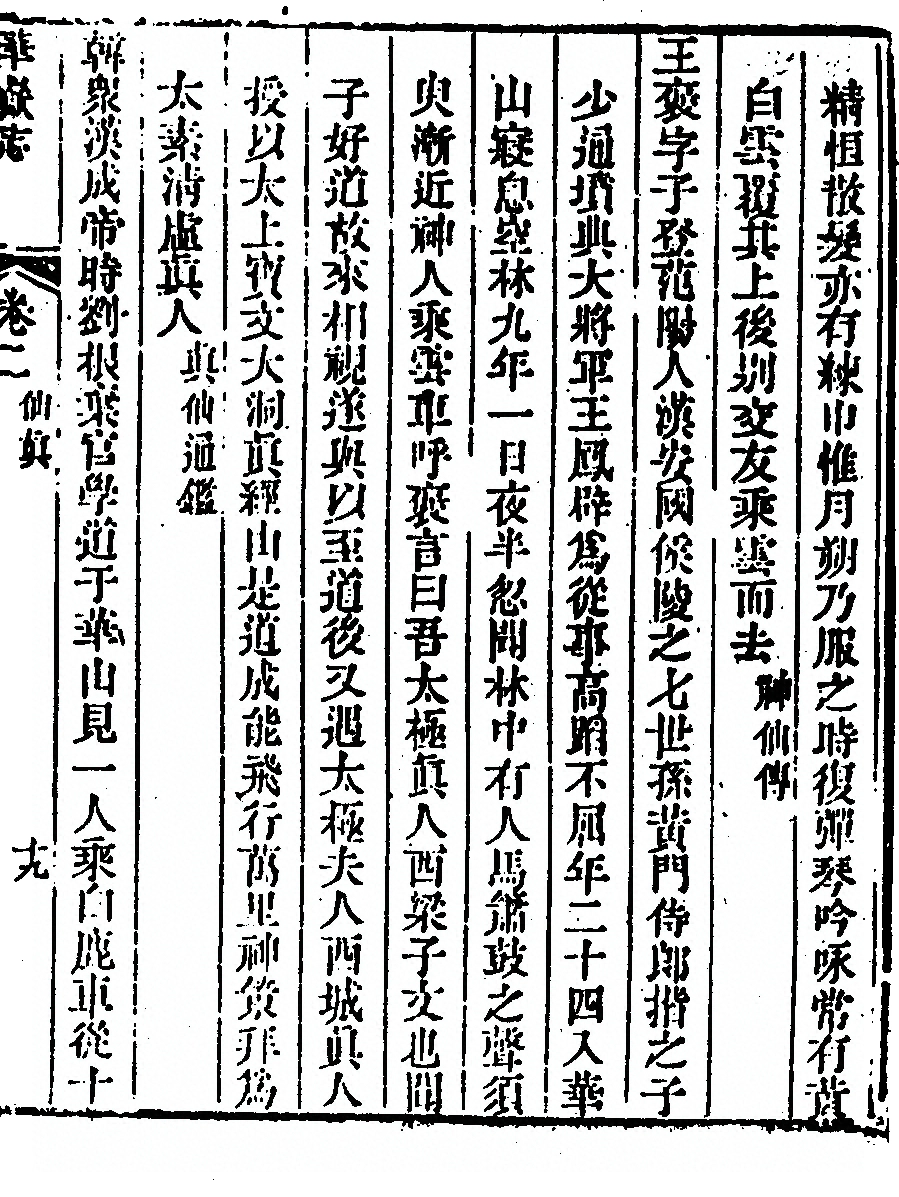 精恒散髮亦有練巾惟月朔乃服之時復彈琴吟咏常有黃
白雲覆其上後別交友乘雲而去神仙傳
王褒字子登范陽人漢安國侯陵之七世孫黃門侍郎揩之子
少通墳典大將軍王鳳辟為從事高蹈不屈年二十四入華
山寢息空林九年一日夜半忽聞林中有人馬簫鼓之聲須
臾漸近神人乘雲車呼褒言曰吾太極眞人西梁子文也聞
子好道故來相視遂與以至道後又遇太極夫人西城眞人
授以太上寶文大洞眞經由是道成能飛行萬里神策拜為
太素清虛眞人真仙通鑑
韓衆漢成帝時劉根棄官學道于華山見一人乘白鹿車從十
華嶽志 卷二 仙眞 十九